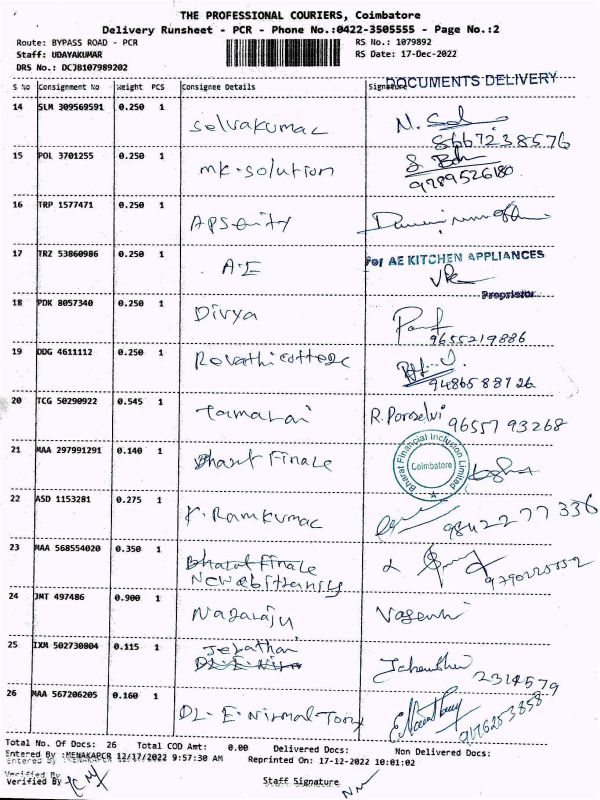 THE PROFESSIONAL COURIERS, Coimbatore
Delivery Runsheet - PCR - Phone No.:0422-3505555 - Page No.:2
Route: BYPASS ROAD - PCR RS No.: 1079892
Staff: UDAYAKUMAR RS Date: 17-Dec-2022
DRS No.: DCJB107989202
DOCUMENTS DELIVERY
S No Consignment No Weight PCS Consignee Details Signature
14 SLM 309569591 0.250 1 Selvakumar
8667238576
15 POL 3701255 0.250 1 mk.solution
9789526180
16 TRP 1577471 0.250 1
17 TRZ 53860986 0.250 1 A.E for AE KITCHEN APPLIANCES
Proprietor
18 PDK 8057340 0.250 1 Divya
9655219886
19 DDG 4611112 0.250 1 Revathi cottege
20 TCG 50290922 0.545 1 Tamarai R. Porselvi 96557 93268
21 MAA 297991291 0.140 1 Bharat Finale Bharat Financial Inclusion Limited
Coimbatore
22 ASD 1153281 0.275 1 K. Ramkumar 9842277336
23 MAA 568554020 0.350 1 Bharat Finale
24 JMT 497486 0.900 1 Nagaraju
25 IXM 502730804 0.115 1 2314579
26 MAA 567206205 0.160 1 DL. E. Nirmal Tony
9176253858
Total No. Of Docs: 26 Total COD Amt: 0.00 Delivered Docs: Non Delivered Docs:
Entered By :MENAKAPCR 12/17/2022 9:57:30 AM Reprinted On: 17-12-2022 10:01:02
Verified By Staff Signature